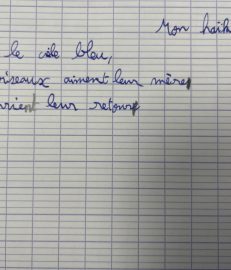 Mon haïk
le ciele bleu,
oiseaux aiment leur mères
rient leur retours